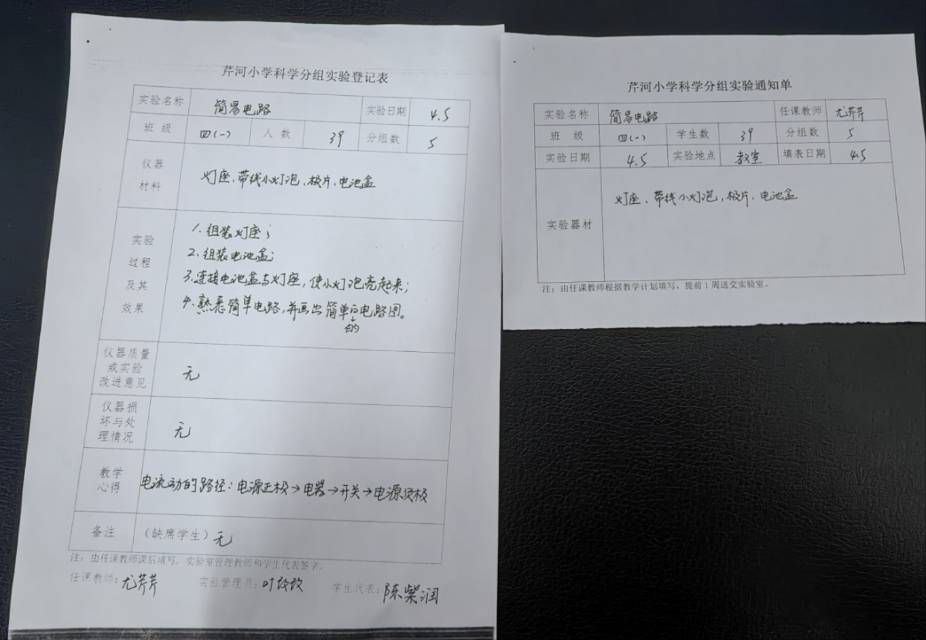 芹河小学科学分组实验登记表
实验名称 简易电路 实验日期 4.5
班级 四(一) 人数 39 分组数 5
仪器
材料
灯座、带线小灯泡,极片、电池盒
实验
过程
及其
效果
1.组装灯座;
2.组装电池盒;
3.连接电池盒与灯座,使小灯泡亮起来;
4.熟悉简单电路,并画出简单电路图。
的
仪器质量
或实验
改进意见
无
仪器损
坏与处
理情况
无
教学
心得
电流动的路径:电源正极→电器→开关→电源负极
备注 (缺席学生)无
注:由任课教师课后填写,实验室管理教师和学生代表签字。
任课教师:尤芹芹 实验管理员:叶 学生代表:陈紫润
芹河小学科学分组实验通知单
实验名称 简易电路 任课教师 尤芹芹
班级 四(一) 学生数 39 分组数 5
实验日期 4.5 实验地点 教室 填表日期 4.5
实验器材
灯座、带线小灯泡,极片、电池盒
注:由任课教师根据教学计划填写,提前1周送交实验室。